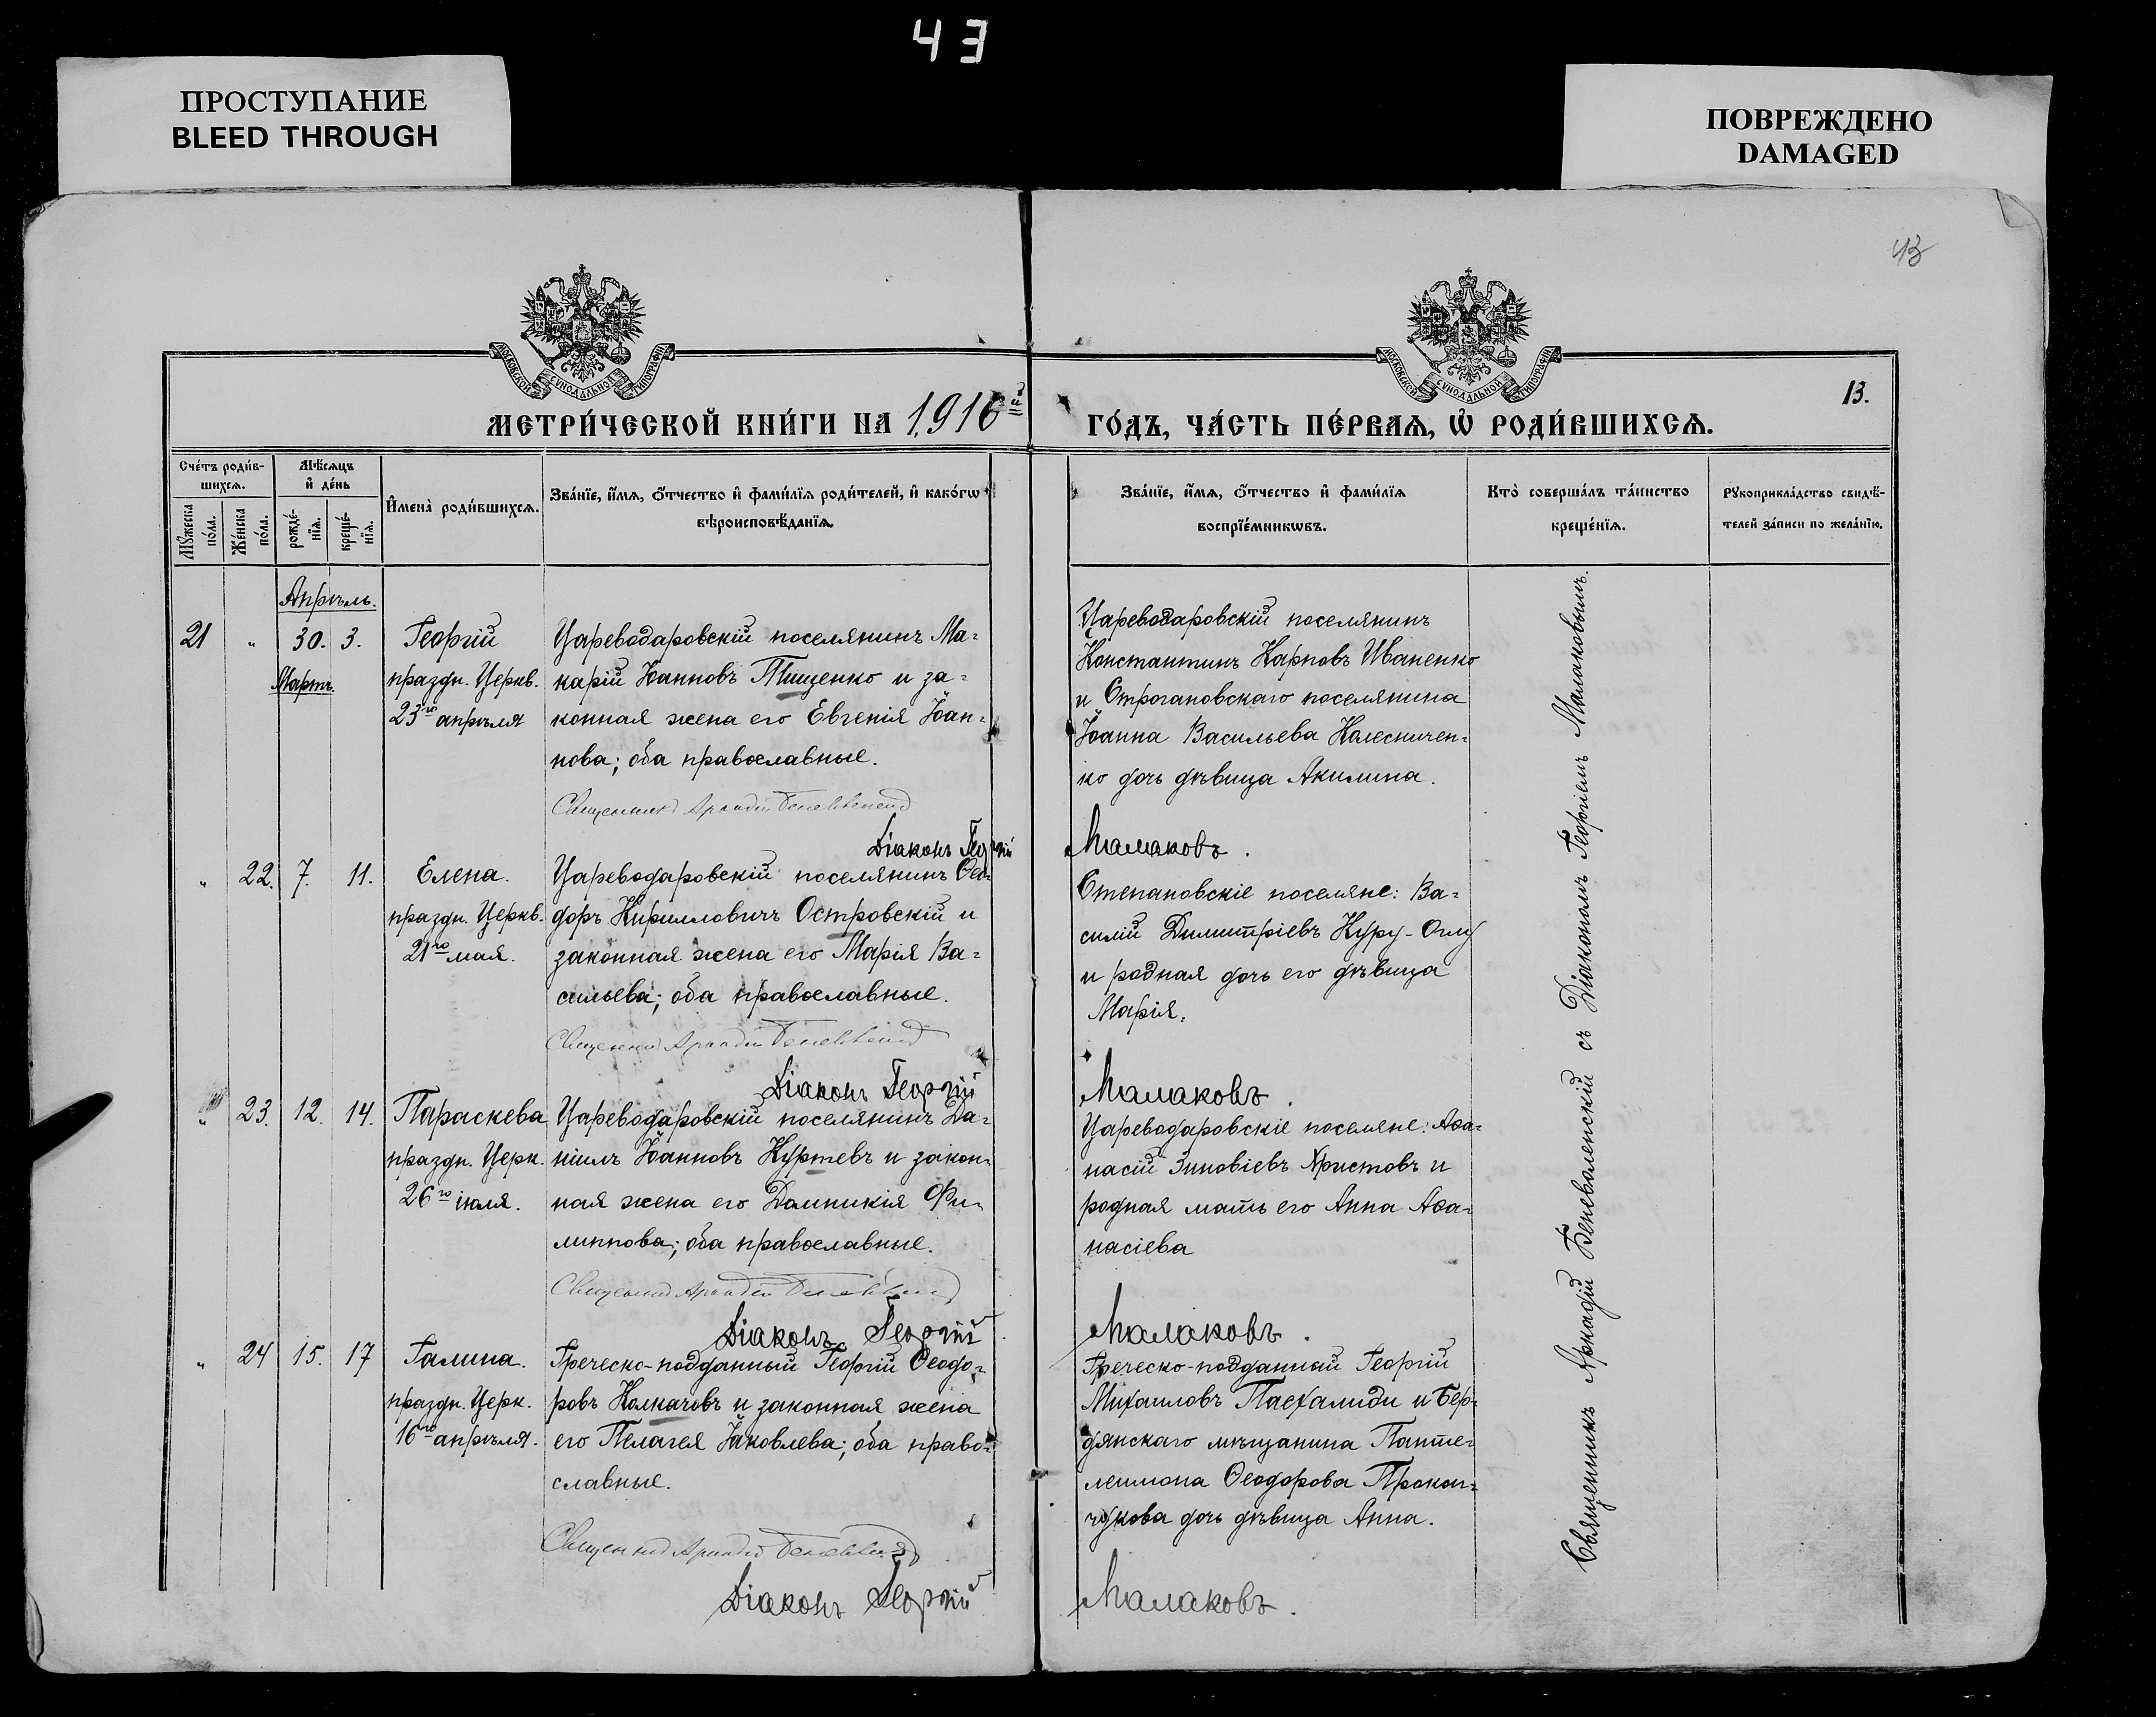 43
ПРОСТУПАНИЕ
BLEED THROUGH
ПОВРЕЖДЕНО
DAMAGED
43
МОСКОВСКОЙ СѴНОДАЛЬНОЙ ТИПОГРАФІИ
МОСКОВСКОЙ СѴНОДАЛЬНОЙ ТИПОГРАФІИ
13.
МЕТРИ́ЧЕСКОЙ КНИ́ГИ НА 1916й
ГО́ДЪ, ЧА́СТЬ ПЕ́РВАѦ, Ѽ РОДИ́ВШИХСѦ.
Сче́тъ роди́в-
шихсѧ.
Мꙋ́жеска по́ла.
Же́нска по́ла.
Мѣ́сѧцъ
и҆ де́нь
рожде́-
нїѧ.
креще́-
нїѧ.
И҆мена̀ роди́вшихсѧ.
Зва́нїе, и҆́мѧ, ѻ҆́тчество и҆ фами́лїѧ роди́телей, и҆ како́гѡ
вѣроисповѣ́данїѧ.
Зва́нїе, и҆́мѧ, ѻ҆́тчество и҆ фами́лїѧ
воспрїе́мникѡвъ.
Кто̀ соверша́лъ та́инство
креще́нїѧ.
Рꙋкоприкла́дство свидѣ́-
телей за́писи по жела́нїю.
Апрѣль.
21 " 30. 3.
Мартъ.
Георгій
праздн. Церкв.
23го апрѣля
Цареводаровскій поселянинъ Ма-
карій Іоанновъ Тищенко и за-
конная жена его Евгенія Іоан-
нова; оба православные.
Священникъ Аркадій Беневоленскій
Діаконъ Георгій
Цареводаровскій поселянинъ
Константинъ Карповъ Иваненко
и Строгановскаго поселянина
Іоанна Васильева Колесничен-
ко дочь дѣвица Акилина.
Малаковъ.
" 22. 7. 11.
Елена.
праздн. Церкв.
21го мая.
Цареводаровскій поселянинъ Ѳео-
доръ Кирилловичъ Островскій и
законная жена его Марія Ва-
сильева; оба православные.
Священникъ Аркадій Беневоленскій
Діаконъ Георгій
Степановскіе поселяне: Ва-
силій Димитріевъ Куру-Оглу
и родная дочь его дѣвица
Марія.
Малаковъ.
" 23. 12. 14.
Параскева
праздн. Церк.
26го іюля.
Цареводаровскій поселянинъ Да-
ніилъ Іоанновъ Куртевъ и закон-
ная жена его Домникія Фи-
липпова; оба православные.
Священникъ Аркадій Беневоленскій
Діаконъ Георгій
Цареводаровскіе поселяне: Аѳа-
насій Зиновіевъ Христовъ и
родная мать его Анна Аѳа-
насіева
Малаковъ.
" 24 15. 17
Галина.
праздн. Церк.
16го апрѣля.
Греческо-подданный Георгій Ѳеодо-
ровъ Колкачовъ и законная жена
его Пелагея Іаковлева; оба право-
славные.
Священникъ Аркадій Беневоленскій
Діаконъ Георгій
Греческо-подданный Георгій
Михаиловъ Пасхалиди и Бер-
дянскаго мѣщанина Панте-
леимона Ѳеодорова Прокоп-
чукова дочь дѣвица Анна.
Малаковъ.
Священникъ Аркадій Беневоленскій съ Діакономъ Георгіемъ Малаковымъ.